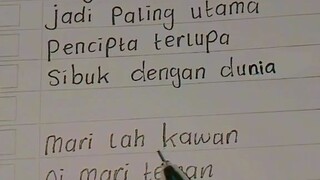 jadi Paling utama
Pencipta terlupa
Sibuk dengan dunia
mari lah kawan
mari teman